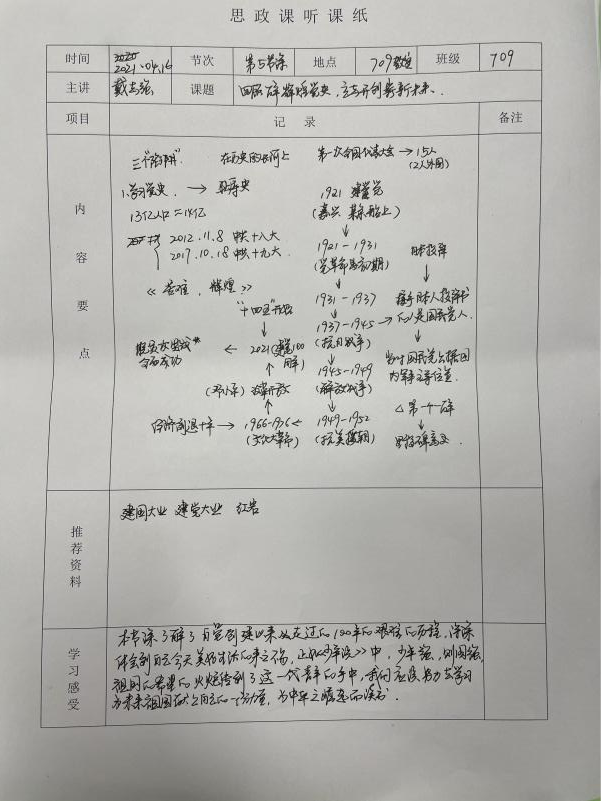 思政课听课纸
时间 2021.04.16 节次 第5节课 地点 709教室 班级 709
主讲 戴志强 课题 回顾辉煌党史,立志开创崭新未来
项目 记录 备注
内容要点
三个陷阱 在历史的长河上 第一次全国代表大会 → 15人
(2人外国)
1.学习党史 →
1921 建党
13亿人口 ≈ 14亿
(嘉兴 船上)
2012.11.8 中共十八大
2017.10.18 中共十九大
1921-1931
(党革命初期)
日本投降
《苦难,辉煌》
1931-1937
接手日本人投降书
"十四五"开始
1937-1945 → 的人是国民党人
(抗日战争)
← 2021(建党100周年)
成功
1945-1949
(解放战争)
当时国民党占据国
内军主导位置
(邓小平) 改革开放
△第一个
经济倒退十年 → 1966-1976 ← 1949-1952
(文化大革命) (抗美援朝)
推荐资料
建国大业 建党大业 红岩
学习感受
本节课了解了自党创建以来走过的100年的艰难的历程,深深
体会到了今天美好生活的来之不易,正如《少年说》中,少年强,则国强,
祖国的希望的火炬传到了这一代青年的手中,我们应该努力去学习
为未来祖国献上自己的一份力量,为中华之崛起而读书.